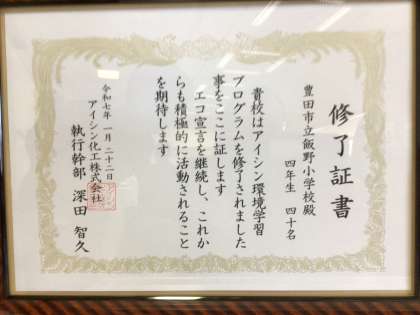 修了証書
豊田市立飯野小学校殿
四年生 四十名
貴校はアイシン環境学習
プログラムを修了されました
事をここに証します
エコ宣言を継続し、これか
らも積極的に活動されること
を期待します
令和七年 一月 二十二日
アイシン化工株式会社
執行幹部 深田 智久